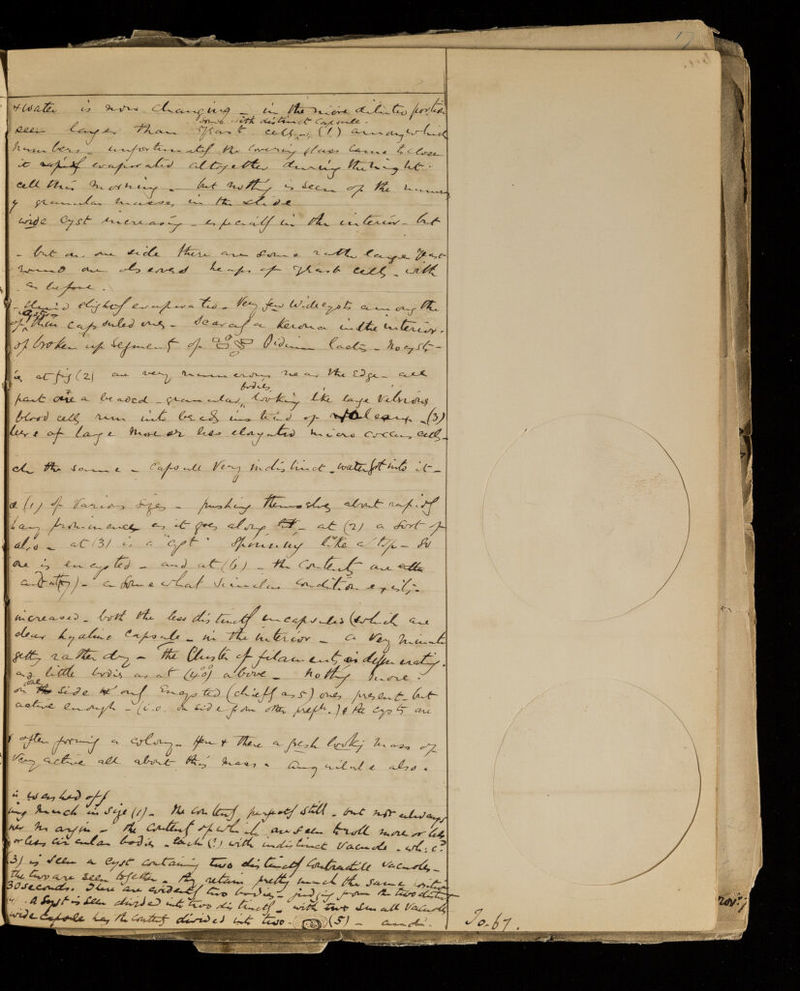 & water is now changing - in the more diluted portion
some with distinct capsule.
seen larger than yeast cells, (1) amongst which
numbers - unfortunately the covering glass came to close
it rapidly evaporated altogether during the night -
cell this morning - but nothing is seen of the
y granular masses in the slide
wide cyst increasing - especially in the interior - but
- but on one side there are some rather large yeast
round are observed heaps of yeast cells - with
as before.
slightly evaporated - Very few wide cysts among the
of then capsuled ones - Scarcely a kerona in the interior.
of broken up segments of Oidium lactis - No cysts -
at fig (2) are very numerous near the edge - all
bodies
part are a beaded - granular, looking like large vibrios
blood cells run into beads in a kind of (3)
here of large more or less elongated micrococcus cells -
the same - capsule very indistinct - water got into it -
(1) of various sizes - pushing themselves about rapidly
any prominence as it goes along - at (2) a sort of
also - at (3) is a "cyst" spinning like a top - So
one is encysted - and at (6) - the contents are
a somewhat similar condition exists -
increased - both the less distinctly encapsuled (which are
clear hyaline capsule - in the interior - a very minute
getting rather dry - The cluster of filaments is degenerating.
and little bodies as at (40) above - Nothing more.
on one side only encysted (chiefly as 5) ones present but
active enough - (i.e. on side from other prepn.) & the cysts are
& often forming a colony - Here & there a fresh looking mass of
Very active all about this mass - Anguilula also.
is washed off
much in size (1) - the contents perfectly still - but not always
margin - the contents of which are seen to roll more or less
or less circular bodies - each (?) with indistinct vacuole -
(3) is seen a cyst containing two distinctly contractile vacuoles -
the two are seen together - they retain pretty much the same position
30 seconds. There are evidently two bodies - judging from the two distinct
A cyst is seen divided into two distinctly - with two small vacuoles
wide capsule has the contents divided into two - (5) - and
Jo. 67.
Nov. 7
17